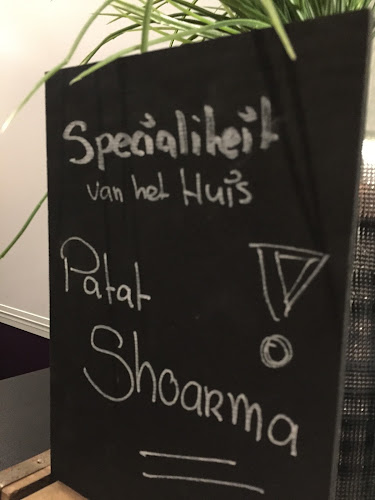 Specialiteit
van het Huis
Patat !
Shoarma